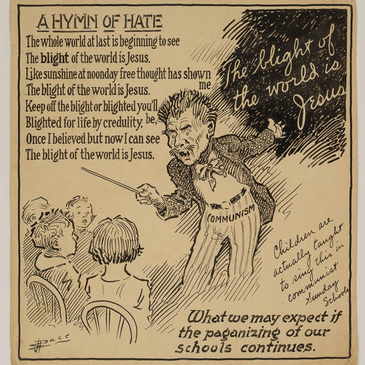 A HYMN OF HATE
The whole world at last is beginning to see
The blight of the world is Jesus.
Like sunshine at noonday free thought has shown me
The blight of the world is Jesus.
Keep off the blight or blighted you'll be,
Blighted for life by credulity.
Once I believed but now I can see
The blight of the world is Jesus.
The blight of
the world is
Jesus
COMMUNISM
Children are
actually taught
to sing this in
communist
Sunday
Schools
What we may expect if
the paganizing of our
schools continues.
Pace